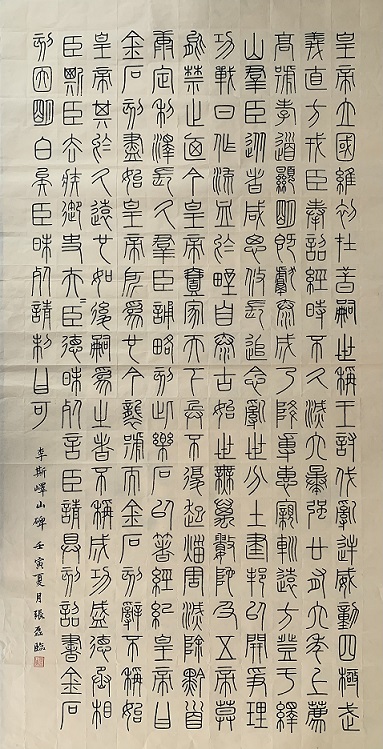 皇帝立國維初在昔嗣世稱王討伐亂逆威動四極武
義直方戎臣奉詔經時不久滅六暴強廿有六年上薦
高號孝道顯明既獻泰成乃降專惠親巡遠方登于繹
山羣臣從者咸思攸長追念亂世分土建邦以開爭理
功戰日作流血於野自泰古始世無萬數陀及五帝莫
能禁止廼今皇帝壹家天下兵不復起災害滅除黔首
康定利澤長久羣臣誦略刻此樂石以著經紀皇帝曰
金石刻盡始皇帝所為也今襲號而金石刻辭不稱始
皇帝其於久遠也如後嗣為之者不稱成功盛德丞相
臣斯臣去疾御史夫=臣德昧死言臣請具刻詔書金石
刻因明白矣臣昧死請制曰可
李斯嶧山碑 壬寅夏月張磊臨